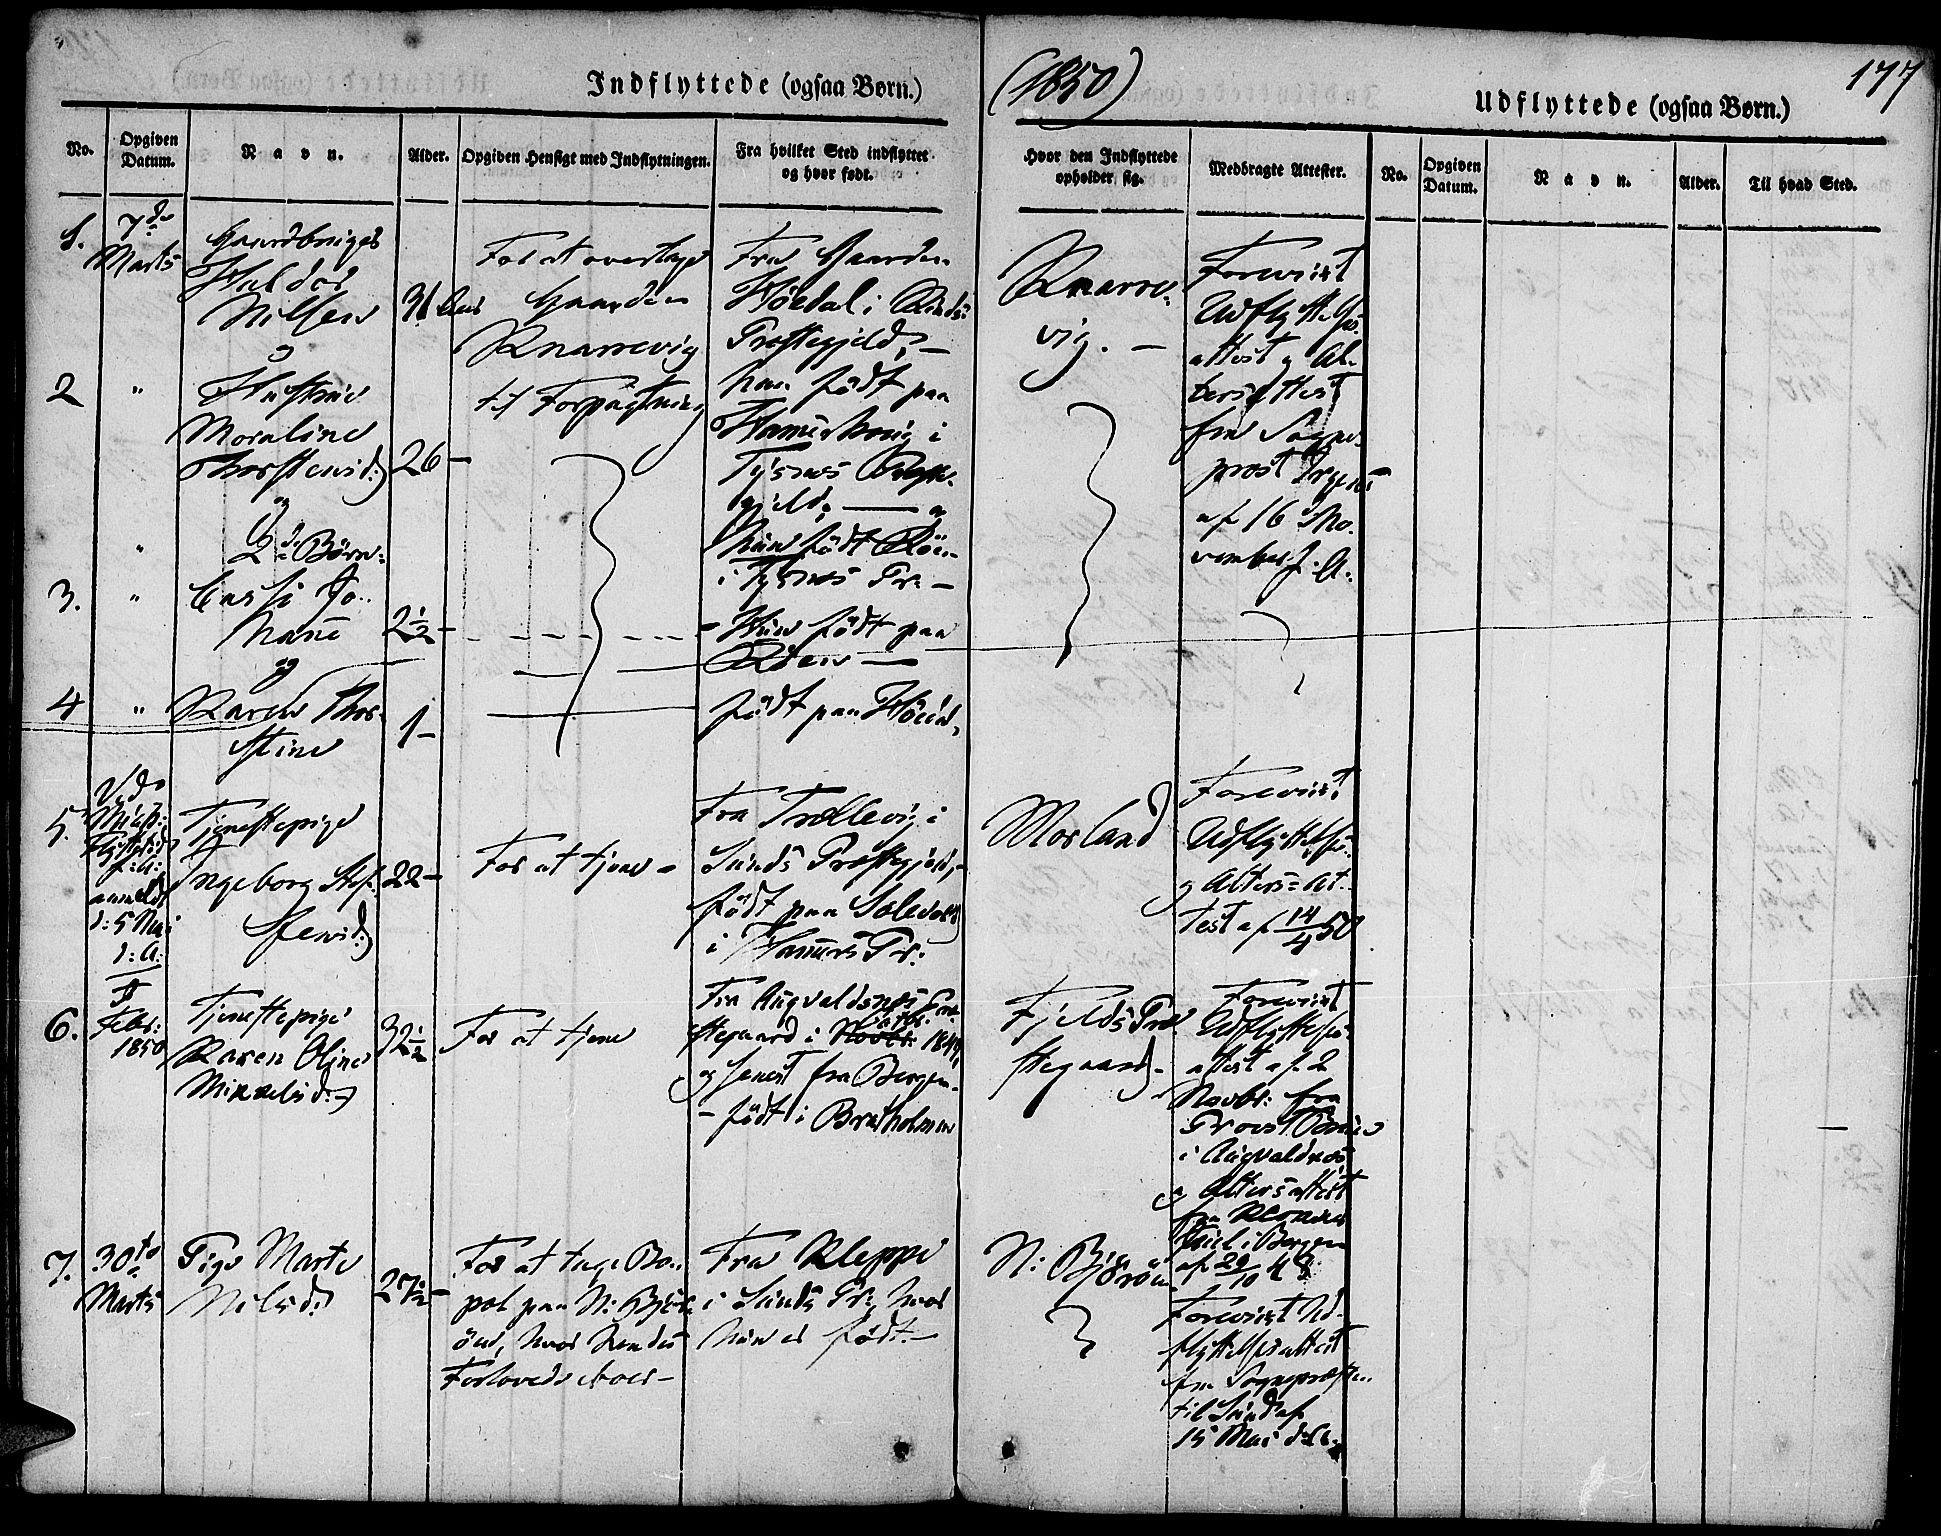 Indflyttede (ogsaa Børn.)
(1850)
Udflyttede (ogsaa Børn.)
177
No.
Opgiven Datum.
Navn.
Alder.
Opgiven Hensigt med Indflytningen.
Fra hvilket Sted indflyttet og hvor født.
Hvor den Indflyttede opholder sig.
Medbragte Attester.
No.
Opgiven Datum.
Navn.
Alder.
Til hvad Sted.
1.
7de
Marts
Gaardbruger
Haldor
Nilsen
og
31 Aar
For at overtage
Gaarden
Knarrevig
til Forpagtning
Fra Gaarden
Høedal i
Præstegjeld, –
han født paa
i
Tysnes Præste-
gjeld, — og
Knarre-
vig. –
Foreviist
Udflyttelses-
attest og Al-
tersattest
fra Sogne-
prost Irgens
af 16 No-
vember f. A.
2
"
Hustrue
Thorstensd:
og
26 –
hun født
i Tysnes Pr. –
"
2de Børn:
3.
"
Jo-
hanne
og
2½ –
Hun født paa
4
"
Karen Thor-
stine
1 –
født paa
5.
Vede
anmeldt
d: 5 Mai
d: A:
Tjenestepige
Ingeborg Stef-
fensd:
22 –
For at tjene –
Fra Trællevig i
Sunds Præstegjeld, –
født paa
i Hammers Pr:
Morland
Foreviist
Udflyttelses-
og Alters-At-
test af 14/4 50
6.
Febr:
1850
Tjenestepige
Karen Oline
Mikkelsd:
32½
For at tjene
Fra Augvaldsnes Præ-
stegaard i Novbr. 1849,
og senest fra Bergen –
– født i Bratholmen
Fjelds Præ-
stegaard –
Foreviist
Udflyttelses-
attest af 2
Novbr: fra
Provst
i Augvaldsnes
og Altersattest
fra Klokker
i Bergen
af 29/10 48
7.
30te
Marts
Pige Marte
Nilsd:
27½ –
For at tage Bo-
pæl paa N: Bjør-
øen, hvor hendes
Forlovede boer –
Fra Kleppe
i Sunds Pr:, hvor
hun er født. –
N: Bjørøen
Foreviist Ud-
flyttelsesattest
fra Sognepræsten
til Sund af
15 Mai d: A: